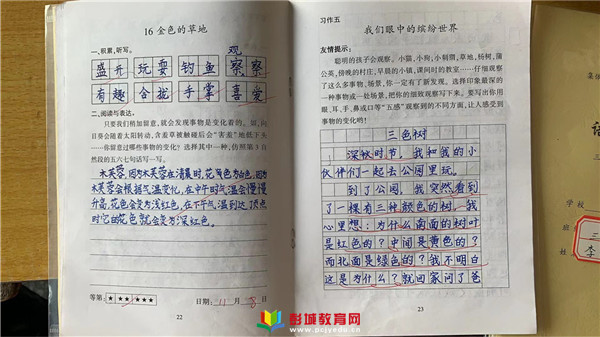 16 金色的草地
一、积累,听写。
观
盛开 玩耍 钓鱼 察 察
有趣 合拢 手掌 喜爱
二、阅读与表达。
只要我们稍加留意,就会发现事物是变化着的。如,向
日葵会随着太阳转动,含羞草被触碰后会“害羞”地低下头
……你留意过哪些事物的变化?选择其中一种,仿照第3自
然段的五六七句话写一写。
木芙蓉,因为木芙蓉在清晨时,花颜色为白色;因为
木芙蓉会根据气温变化,在中午时气温会慢慢
升高,花色会变为浅红色,在下午气温到达顶点
时它的花色就会变为深红色。
等第:★ ★★ ★★★
日期: 11 月 3 日
22
习作五
我们眼中的缤纷世界
友情提示:
聪明的孩子会观察。小猫,小狗,小刺猬,草地,杨树,蒲
公英,傍晚的村庄,早晨的小镇,课间时的教室……仔细观察
了这么多事物、场景,你一定有了新发现。选择印象最深的
一种事物或一处场景,把你的细致观察写下来。要写出你用
眼、耳、手、鼻或口等“五感”观察到的不同方面,让人感受到
事物的变化哟!
三色树
深秋时节。我和我的小
伙伴们一起去公园里玩。
到了公园,我突然看到
了一棵有三种颜色的树,我
心里想:为什么南面的树叶
是红色的?中间是黄色的?
而北面是绿色的?我不明白
这是为什么?就回家问了爸
23
学校
班
三
姓
李
彭城教育网
www.pcjyedu.cn